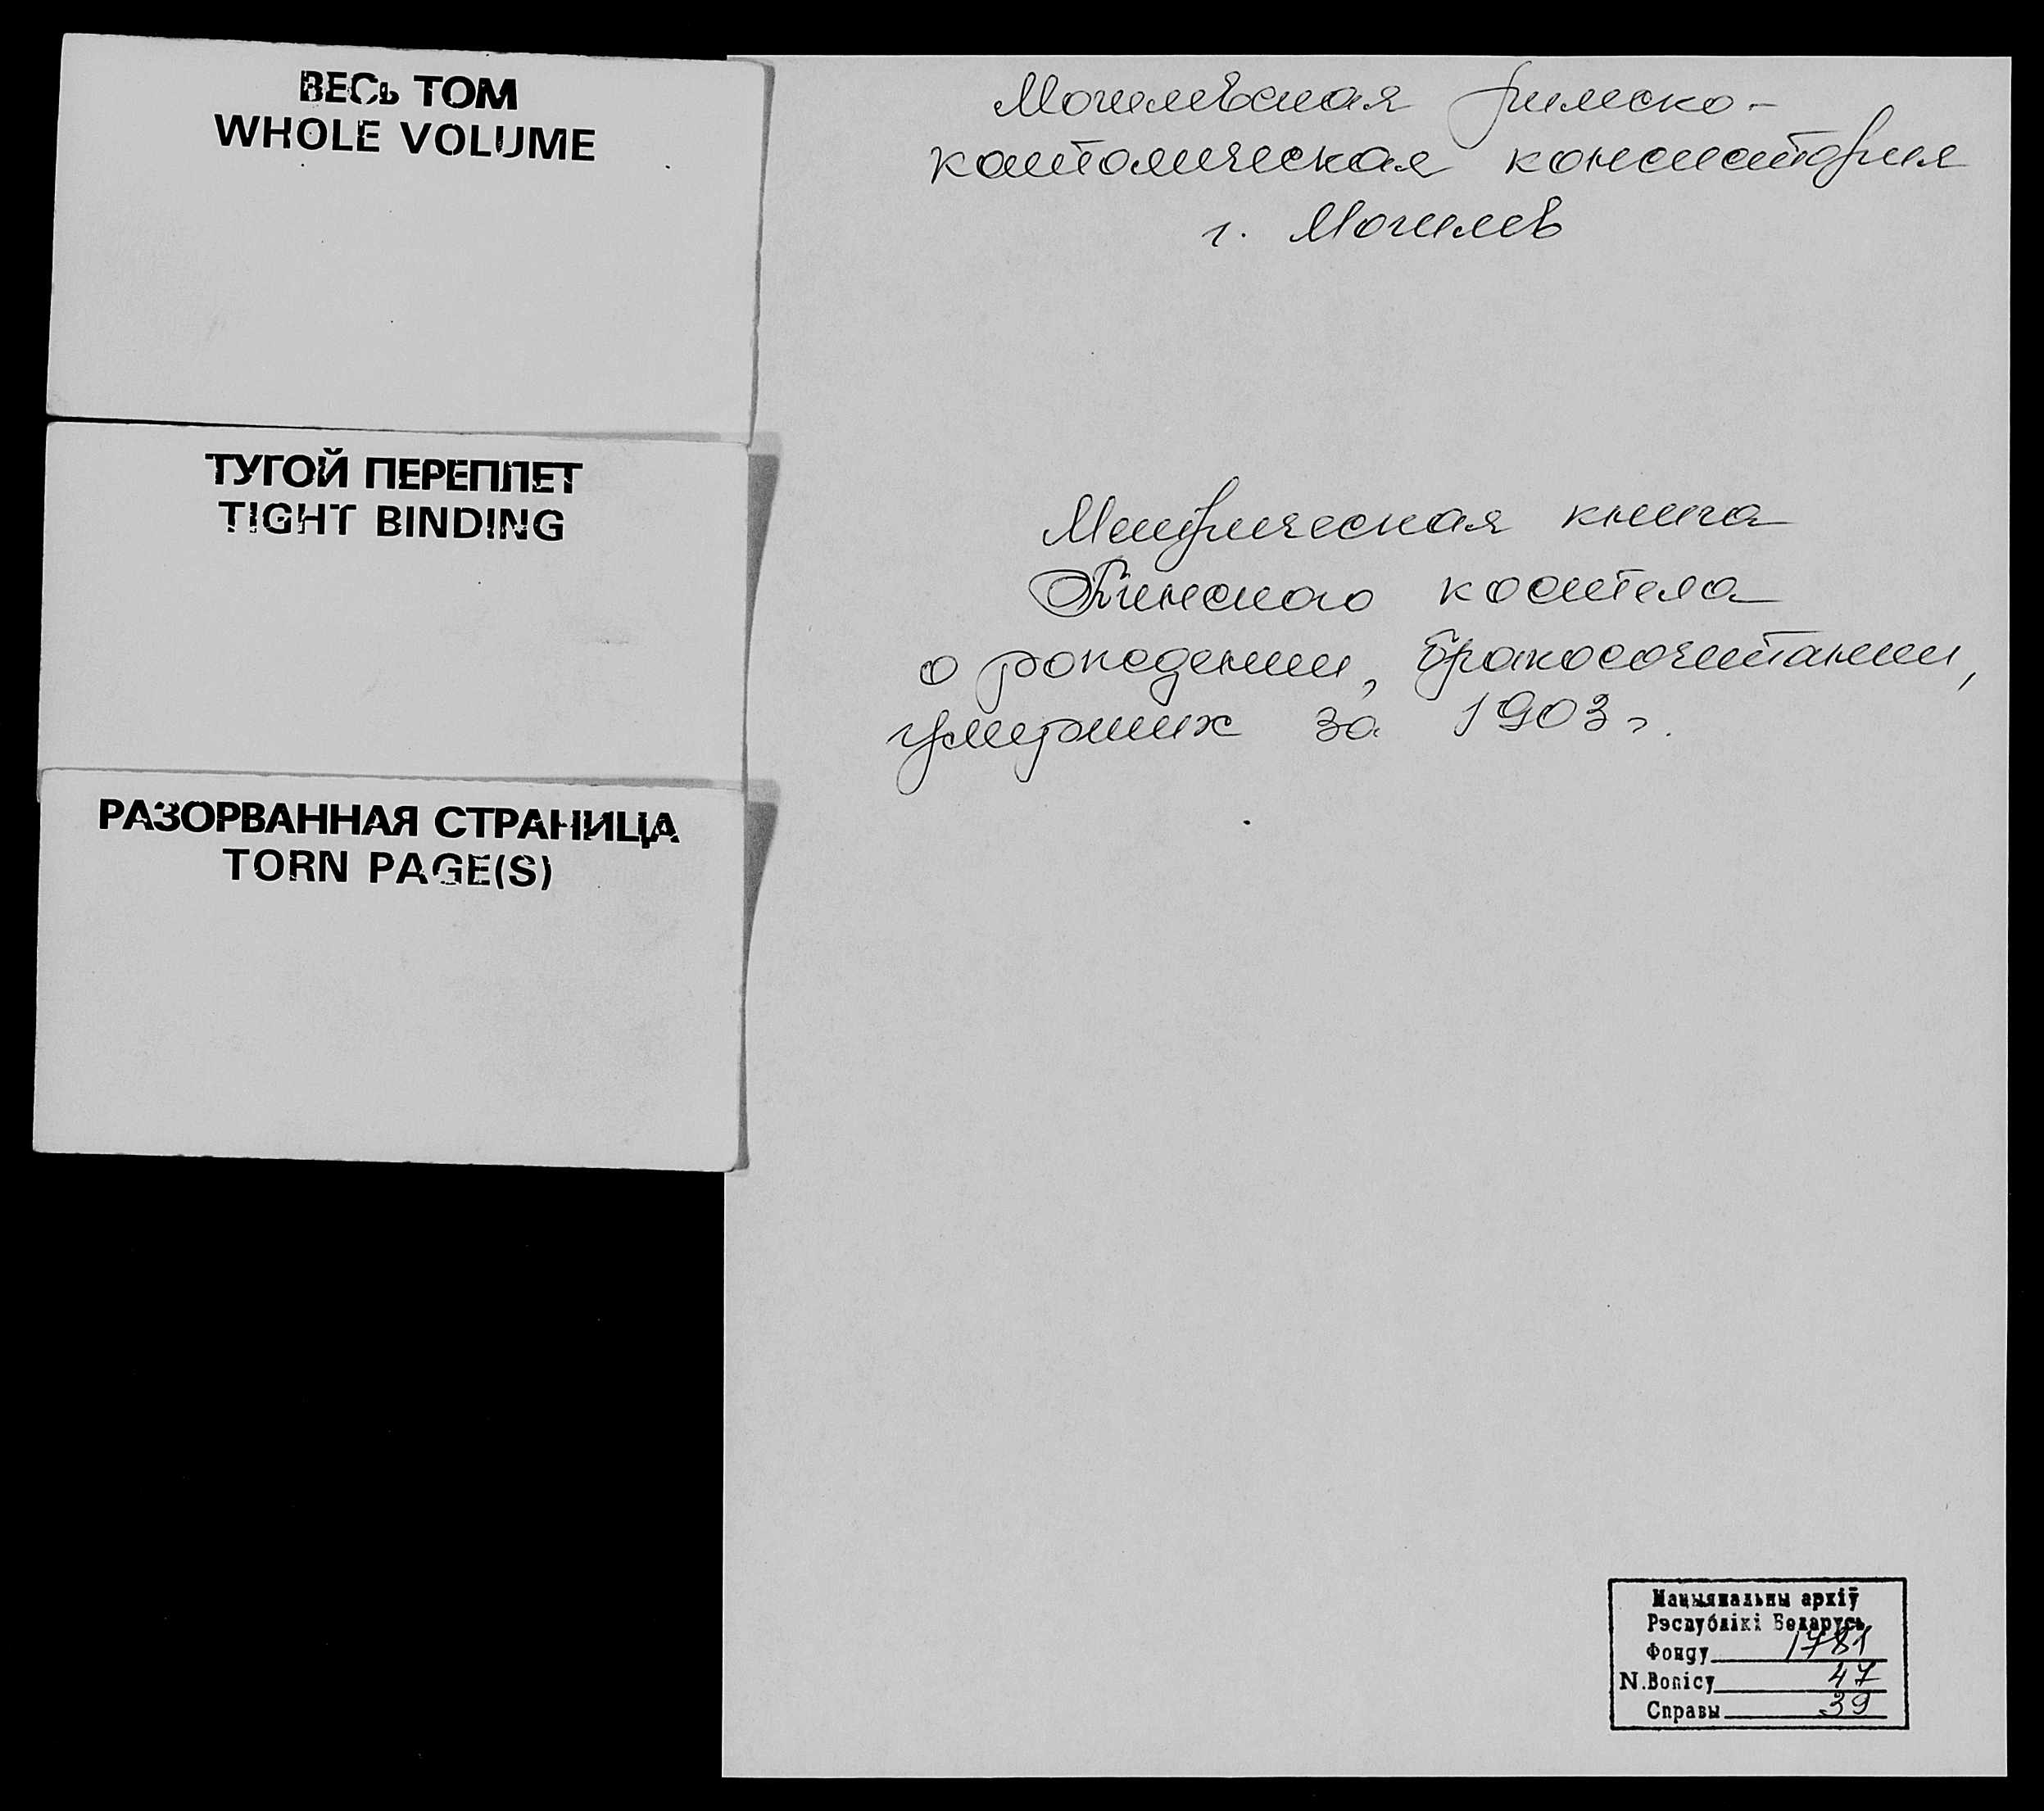 ВЕСЬ ТОМ
WHOLE VOLUME
ТУГОЙ ПЕРЕПЛЕТ
TIGHT BINDING
РАЗОРВАННАЯ СТРАНИЦА
TORN PAGE(S)
Могилевская римско-
католическая консистория
г. Могилев
Метрическая книга
костела
о рождении, бракосочетании,
умерших за 1903 г.
Нацыянальны архіў
Рэспублікі Беларусь
Фонду 1781
N.Вопісу 47
Справы 39